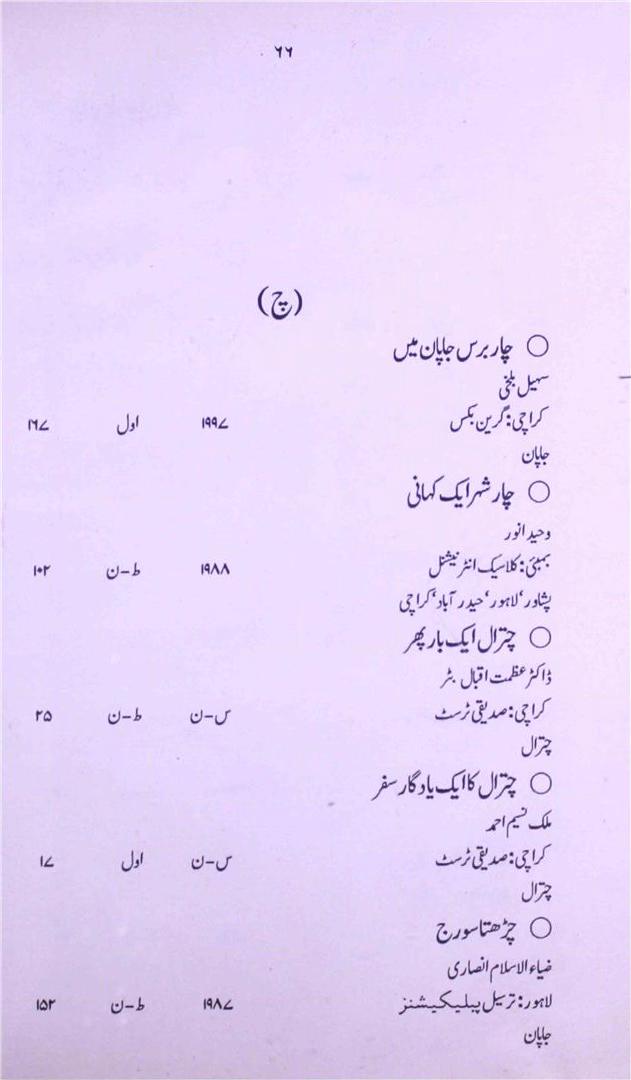 ۶۶
(چ)
○ چار برس جاپان میں
سہیل بلخی
کراچی: گرین بکس ۱۹۹۷ اول ۱۶۷
جاپان
○ چار شہر ایک کہانی
وحید انور
بمبئی: کلاسیک انٹرنیشنل ۱۹۸۸ ط-ن ۱۰۲
پشاور، لاہور، حیدر آباد، کراچی
○ چترال ایک بار پھر
ڈاکٹر عظمت اقبال بٹر
کراچی: صدیقی ٹرسٹ س-ن ط-ن ۲۵
چترال
○ چترال کا ایک یادگار سفر
ملک نسیم احمد
کراچی: صدیقی ٹرسٹ س-ن اول ۱۷
چترال
○ چڑھتا سورج
ضیاء الاسلام انصاری
لاہور: ترسیل پبلیکیشنز ۱۹۸۷ ط-ن ۱۵۲
جاپان